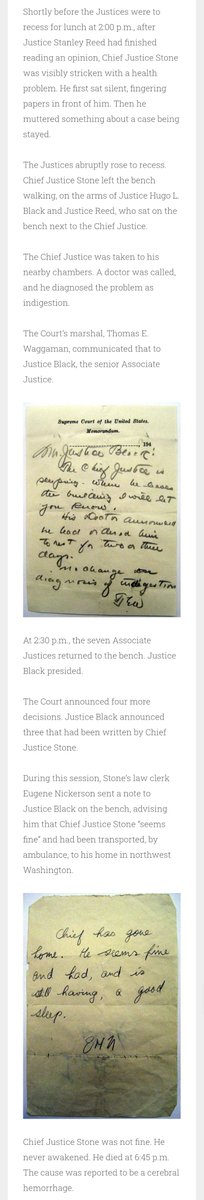 Shortly before the Justices were to
recess for lunch at 2:00 p.m., after
Justice Stanley Reed had finished
reading an opinion, Chief Justice Stone
was visibly stricken with a health
problem. He first sat silent, fingering
papers in front of him. Then he
muttered something about a case being
stayed.
The Justices abruptly rose to recess.
Chief Justice Stone left the bench
walking, on the arms of Justice Hugo L.
Black and Justice Reed, who sat on the
bench next to the Chief Justice.
The Chief Justice was taken to his
nearby chambers. A doctor was called,
and he diagnosed the problem as
indigestion.
The Court's marshal, Thomas E.
Waggaman, communicated that to
Justice Black, the senior Associate
Justice.
Supreme Court of the United States.
Memorandum.
194
Mr. Justice Black:
The Chief Justice is
sleeping. When he leaves
the building I will let
you know.
His Doctor announced
he had ordered him
to rest for two or three
days.
no change
diagnosis of indigestion
TEW
At 2:30 p.m., the seven Associate
Justices returned to the bench. Justice
Black presided.
The Court announced four more
decisions. Justice Black announced
three that had been written by Chief
Justice Stone.
During this session, Stone's law clerk
Eugene Nickerson sent a note to
Justice Black on the bench, advising
him that Chief Justice Stone "seems
fine" and had been transported, by
ambulance, to his home in northwest
Washington.
Chief has gone
home. He seems fine
and had, and is
still having, a good
sleep.
EHN
Chief Justice Stone was not fine. He
never awakened. He died at 6:45 p.m.
The cause was reported to be a cerebral
hemorrhage.